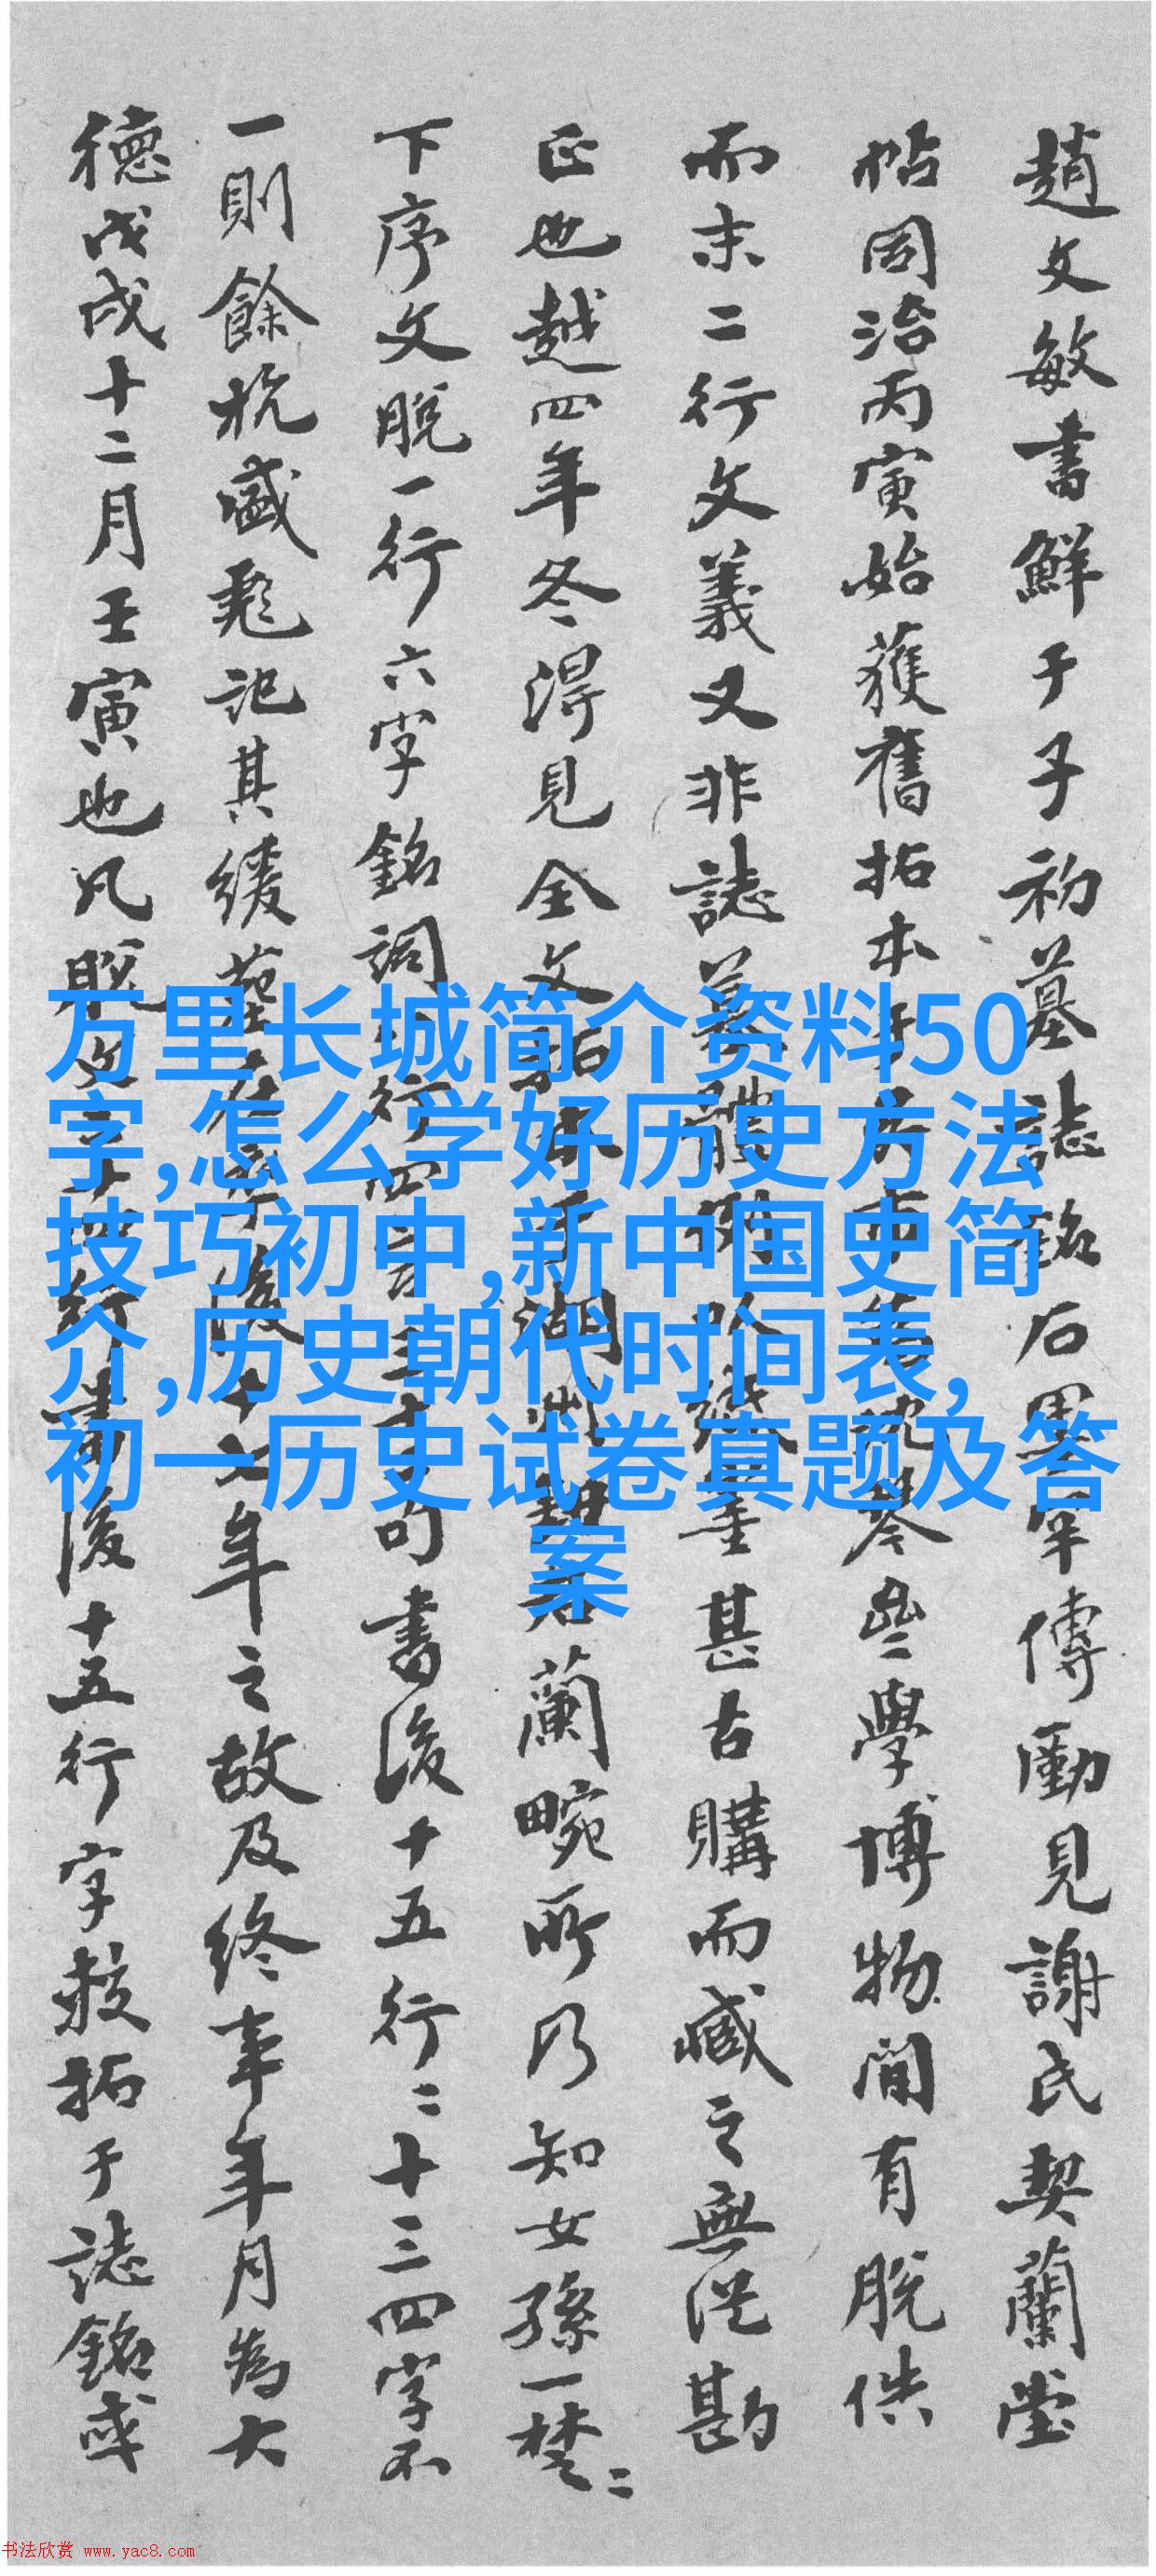 趙文敏書鮮于子初墓誌銘石墨
傳勵見謝氏契蘭堂
帖同治丙寅始獲舊拓本
琴些學博物閒有脫佚
而末二行文義又非誌墓體例
甚古購而臧之無從勘
正也越四年冬得見全文拓本于湖州
蘭畹所乃知女孫一楚二
下序文脫一行六字銘詞
行四言三十句書後十五行二十三四字不
一則餘杭盛彪記其緩葬
後十七年之故及終事年月為大
德戊戌十二月壬寅也凡脫文
書後十五行字較拓于誌銘或
万里长城简介资料50
字,怎么学好历史方法
技巧初中,新中国史简
介,历史朝代时间表,
初一历史试卷真题及答
案
书法欣赏 www.yac8.com